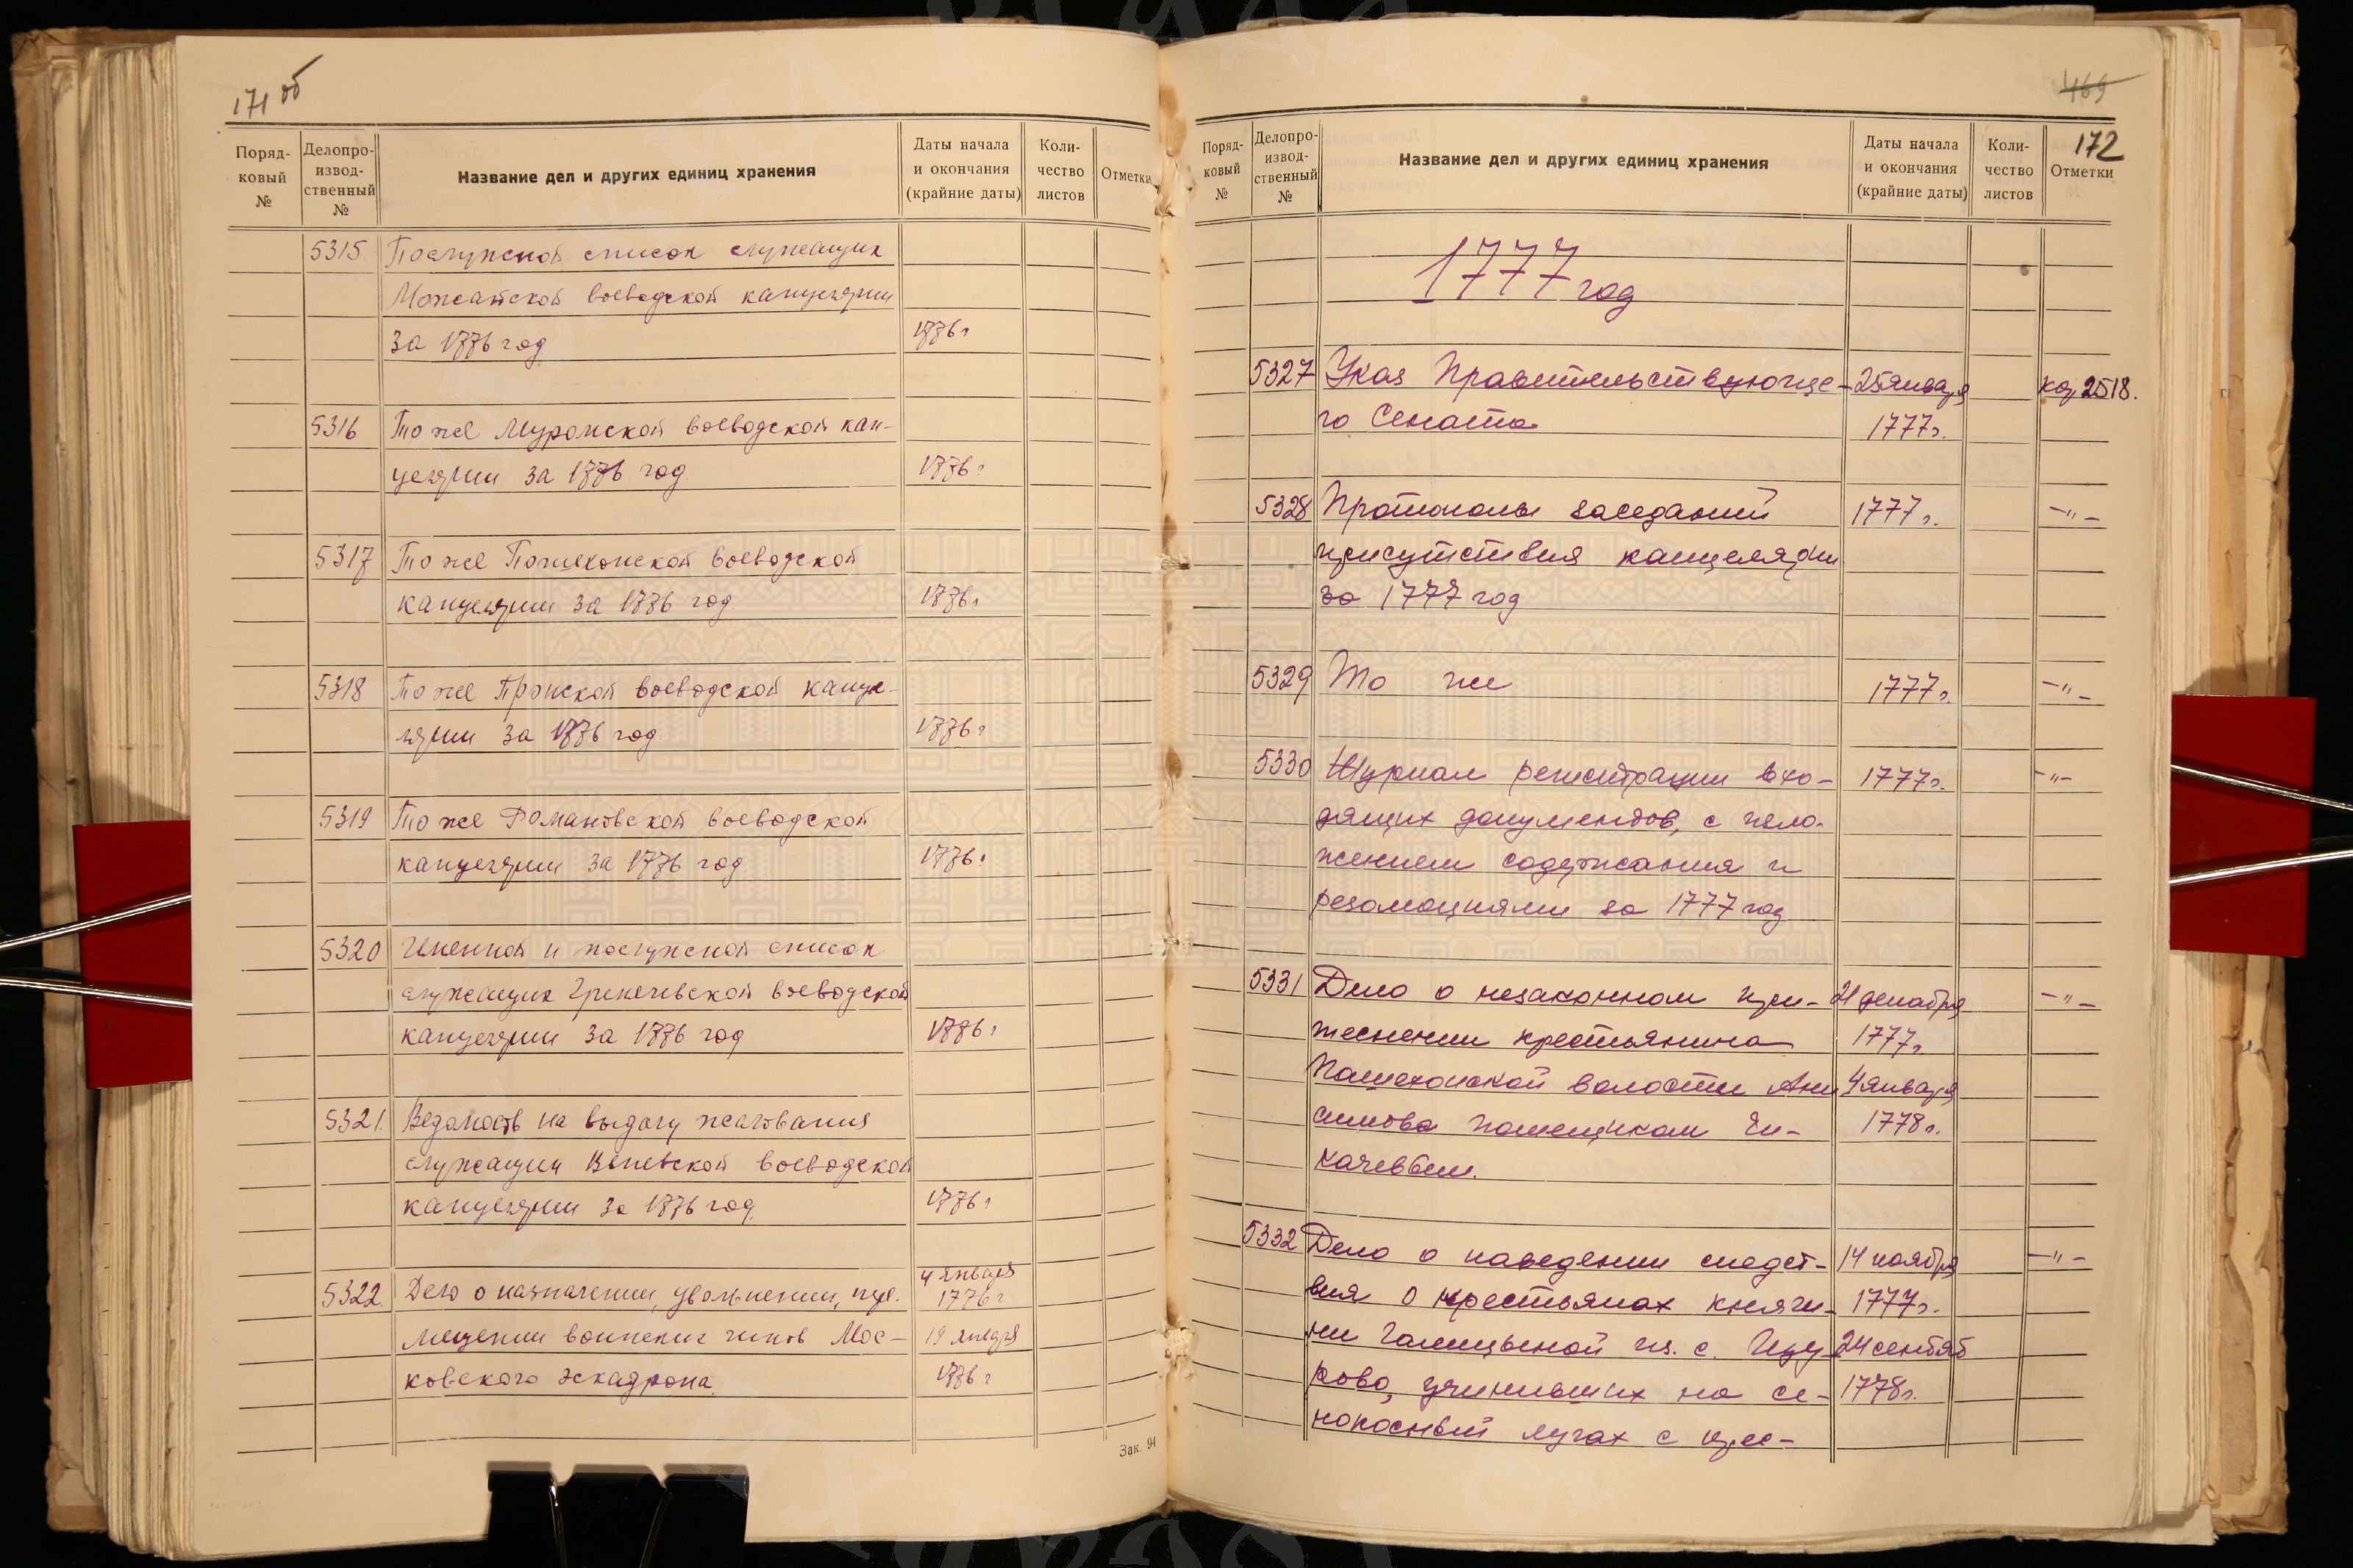 171 об
Поряд-
ковый
№
Делопро-
извод-
ственный
№
Название дел и других единиц хранения
Даты начала
и окончания
(крайние даты)
Коли-
чество
листов
Отметки
5315. Послужной список служащих
Можайской воеводской канцелярии
за 1776 год 1776 г
5316 То же Муромской воеводской кан-
целярии за 1776 год. 1776 г
5317 То же Пошехонской воеводской
канцелярии за 1776 год 1776 г
5318 То же Пронской воеводской канце-
лярии за 1776 год 1776 г
5319 То же Романовской воеводской
канцелярии за 1776 год 1776 г
5320 Именной и послужной список
служащих воеводской
канцелярии за 1776 год 1776 г
5321. Ведомость на выдачу жалования
служащим Веневской воеводской
канцелярии за 1776 год. 1776 г
5322. Дело о назначении, увольнении, 4 января 1776 г
мещении воинских чинов Мос- 19 января
ковского эскадрона 1776 г
Зак. 94
469
172
Поряд-
ковый
№
Делопро-
извод-
ственный
№
Название дел и других единиц хранения
Даты начала
и окончания
(крайние даты)
Коли-
чество
листов
Отметки
1777 год
5327 Указ Правительствующе- 25 января 2518.
го Сената 1777 г.
5328 Протоколы заседаний 1777 г. -"-
присутствия канцелярии
за 1777 год
5329 То же 1777 г. -"-
5330 Журнал регистрации вхо- 1777 г. -"-
дящих документов, с изло-
жением содержания и
резолюциями за 1777 год
5331 Дело о незаконном при- 21 декабря -"-
теснении крестьянина 1777 г.
Пошехонской волости Ани 4 января
симова помещиком Чи- 1778 г.
качевым.
5332 Дело о наведении следст- 14 ноября -"-
вия о крестьянах княги- 1777 г.
ни Голицыной из. с. 24 сентяб
учинивших на се- 1778 г.
нокосный лугах с кре-